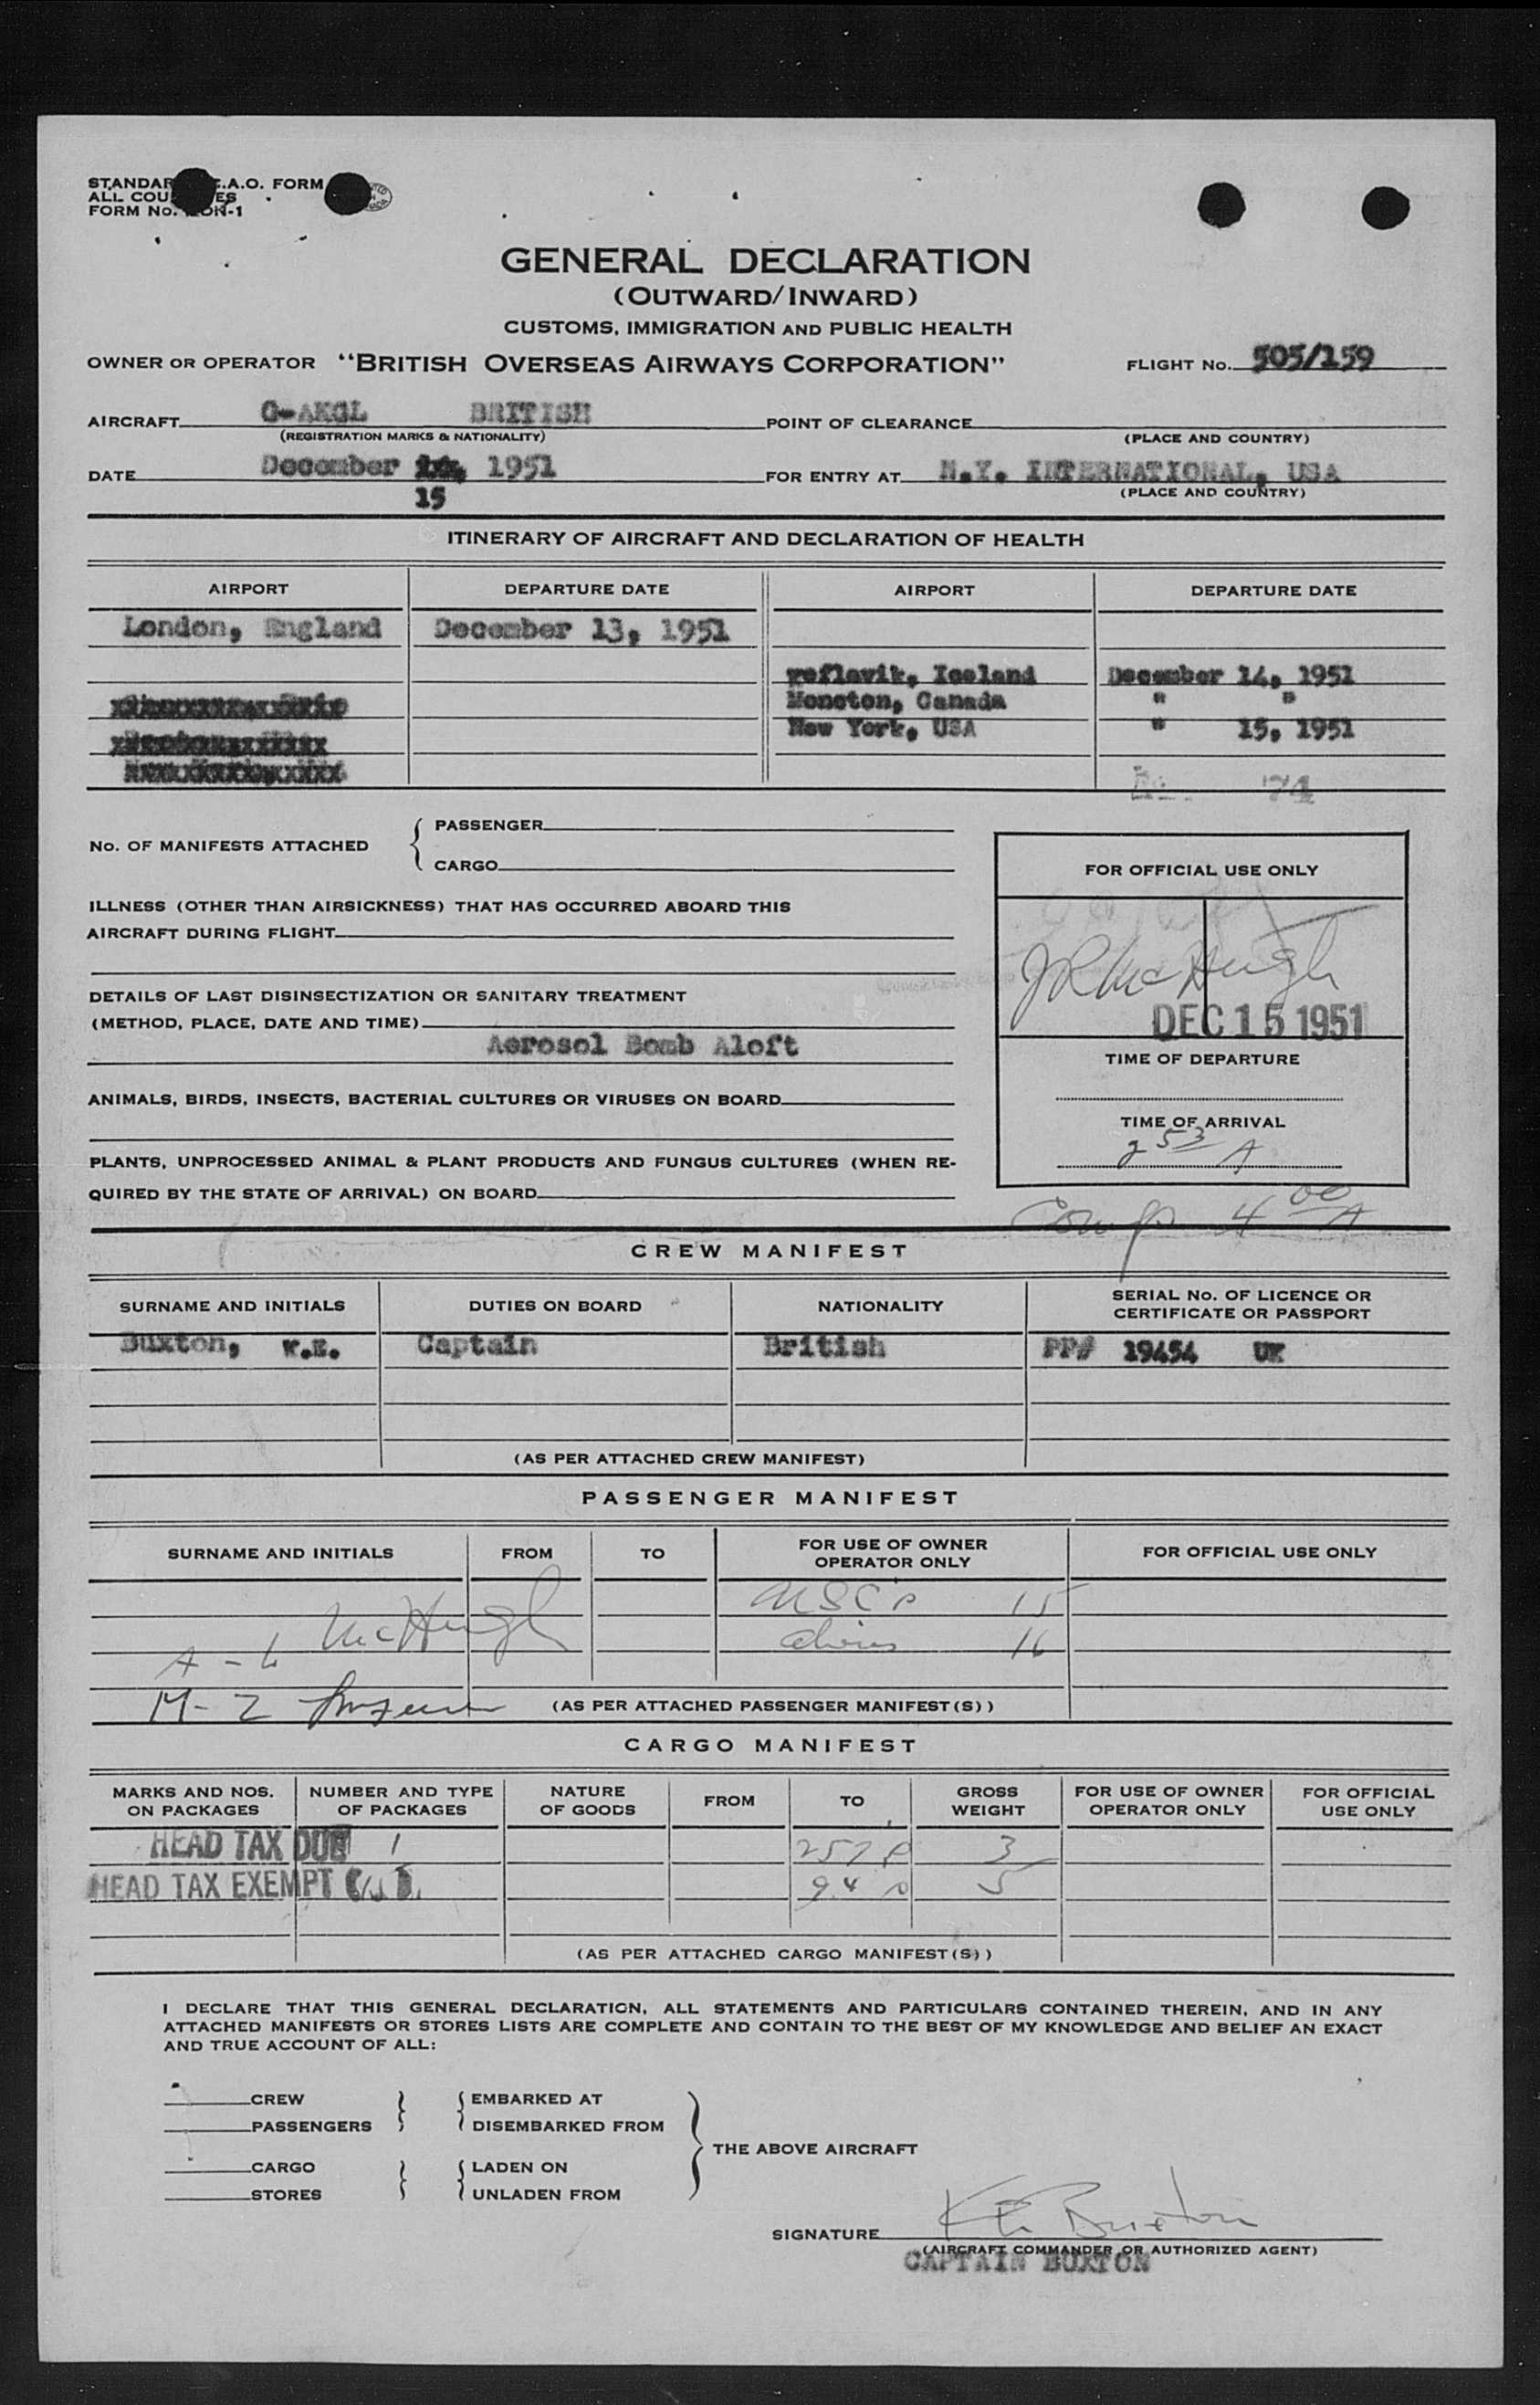 STANDAR .A.O. FORM
ALL COU ES
FORM No. ON-1
GENERAL DECLARATION
(OUTWARD/INWARD)
CUSTOMS, IMMIGRATION AND PUBLIC HEALTH
OWNER OR OPERATOR "BRITISH OVERSEAS AIRWAYS CORPORATION" FLIGHT No. 505/159
AIRCRAFT G-AKGL BRITISH POINT OF CLEARANCE
(REGISTRATION MARKS & NATIONALITY) (PLACE AND COUNTRY)
DATE December 1951 FOR ENTRY AT N.Y. INTERNATIONAL, USA
15 (PLACE AND COUNTRY)
ITINERARY OF AIRCRAFT AND DECLARATION OF HEALTH
AIRPORT DEPARTURE DATE AIRPORT DEPARTURE DATE
London, England December 13, 1951
Keflavik, Iceland December 14, 1951
Moncton, Canada " "
New York, USA " 15, 1951
No. OF MANIFESTS ATTACHED
PASSENGER
CARGO
FOR OFFICIAL USE ONLY
ILLNESS (OTHER THAN AIRSICKNESS) THAT HAS OCCURRED ABOARD THIS
AIRCRAFT DURING FLIGHT
JR McHugh
DETAILS OF LAST DISINSECTIZATION OR SANITARY TREATMENT
(METHOD, PLACE, DATE AND TIME)
DEC 15 1951
Aerosol Bomb Aloft
TIME OF DEPARTURE
ANIMALS, BIRDS, INSECTS, BACTERIAL CULTURES OR VIRUSES ON BOARD
TIME OF ARRIVAL
2 53 A
PLANTS, UNPROCESSED ANIMAL & PLANT PRODUCTS AND FUNGUS CULTURES (WHEN RE-
QUIRED BY THE STATE OF ARRIVAL) ON BOARD
Comp 4 00 A
CREW MANIFEST
SURNAME AND INITIALS DUTIES ON BOARD NATIONALITY SERIAL No. OF LICENCE OR
CERTIFICATE OR PASSPORT
Buxton, K.E. Captain British PP# 19454 UK
(AS PER ATTACHED CREW MANIFEST)
PASSENGER MANIFEST
SURNAME AND INITIALS FROM TO FOR USE OF OWNER
OPERATOR ONLY FOR OFFICIAL USE ONLY
USC's 15
A - L McHugh aliens 16
M - Z (AS PER ATTACHED PASSENGER MANIFEST(S))
CARGO MANIFEST
MARKS AND NOS.
ON PACKAGES
NUMBER AND TYPE
OF PACKAGES
NATURE
OF GOODS
FROM TO
GROSS
WEIGHT
FOR USE OF OWNER
OPERATOR ONLY
FOR OFFICIAL
USE ONLY
HEAD TAX DUE 1 257 P 3
HEAD TAX EXEMPT 94 5
(AS PER ATTACHED CARGO MANIFEST(S))
I DECLARE THAT THIS GENERAL DECLARATION, ALL STATEMENTS AND PARTICULARS CONTAINED THEREIN, AND IN ANY
ATTACHED MANIFESTS OR STORES LISTS ARE COMPLETE AND CONTAIN TO THE BEST OF MY KNOWLEDGE AND BELIEF AN EXACT
AND TRUE ACCOUNT OF ALL:
CREW EMBARKED AT
PASSENGERS DISEMBARKED FROM
THE ABOVE AIRCRAFT
CARGO LADEN ON
STORES UNLADEN FROM
SIGNATURE KE Buxton
(AIRCRAFT COMMANDER OR AUTHORIZED AGENT)
CAPTAIN BUXTON